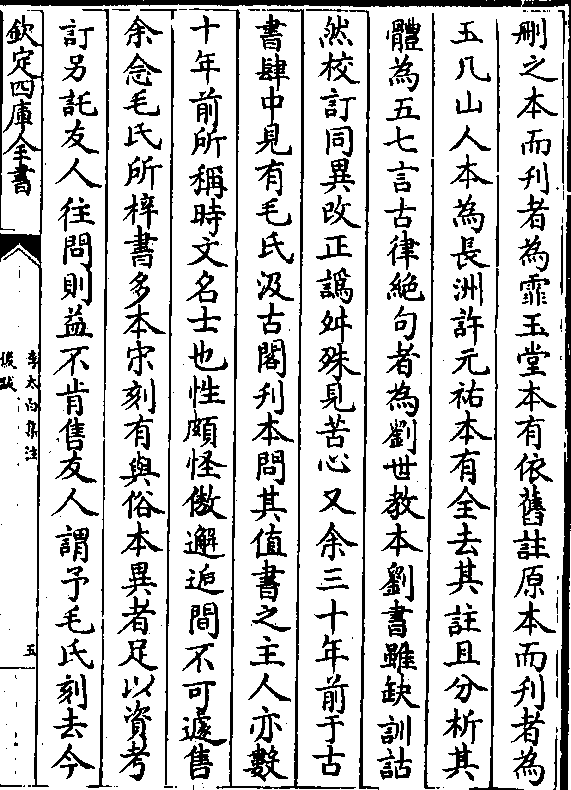 刪之本而刋者為霏玉堂本有依舊註原本而刋者為
玉几山人本為長洲許元祐本有全去其註且分析其
體為五七言古律絶句者為劉世教本劉書雖缺訓詁
然校訂同異改正譌舛殊見苦心又余三十年前于古
書肆中見有毛氏汲古閣刋本問其值書之主人亦數
十年前所稱時文名士也性頗怪傲邂逅間不可遽售
余念毛氏所梓書多本宋刻有與俗本異者足以資考
訂另託友人往問則益不肯售友人謂予毛氏刻去今
欽定四庫全書
李太白集注
後跋
五